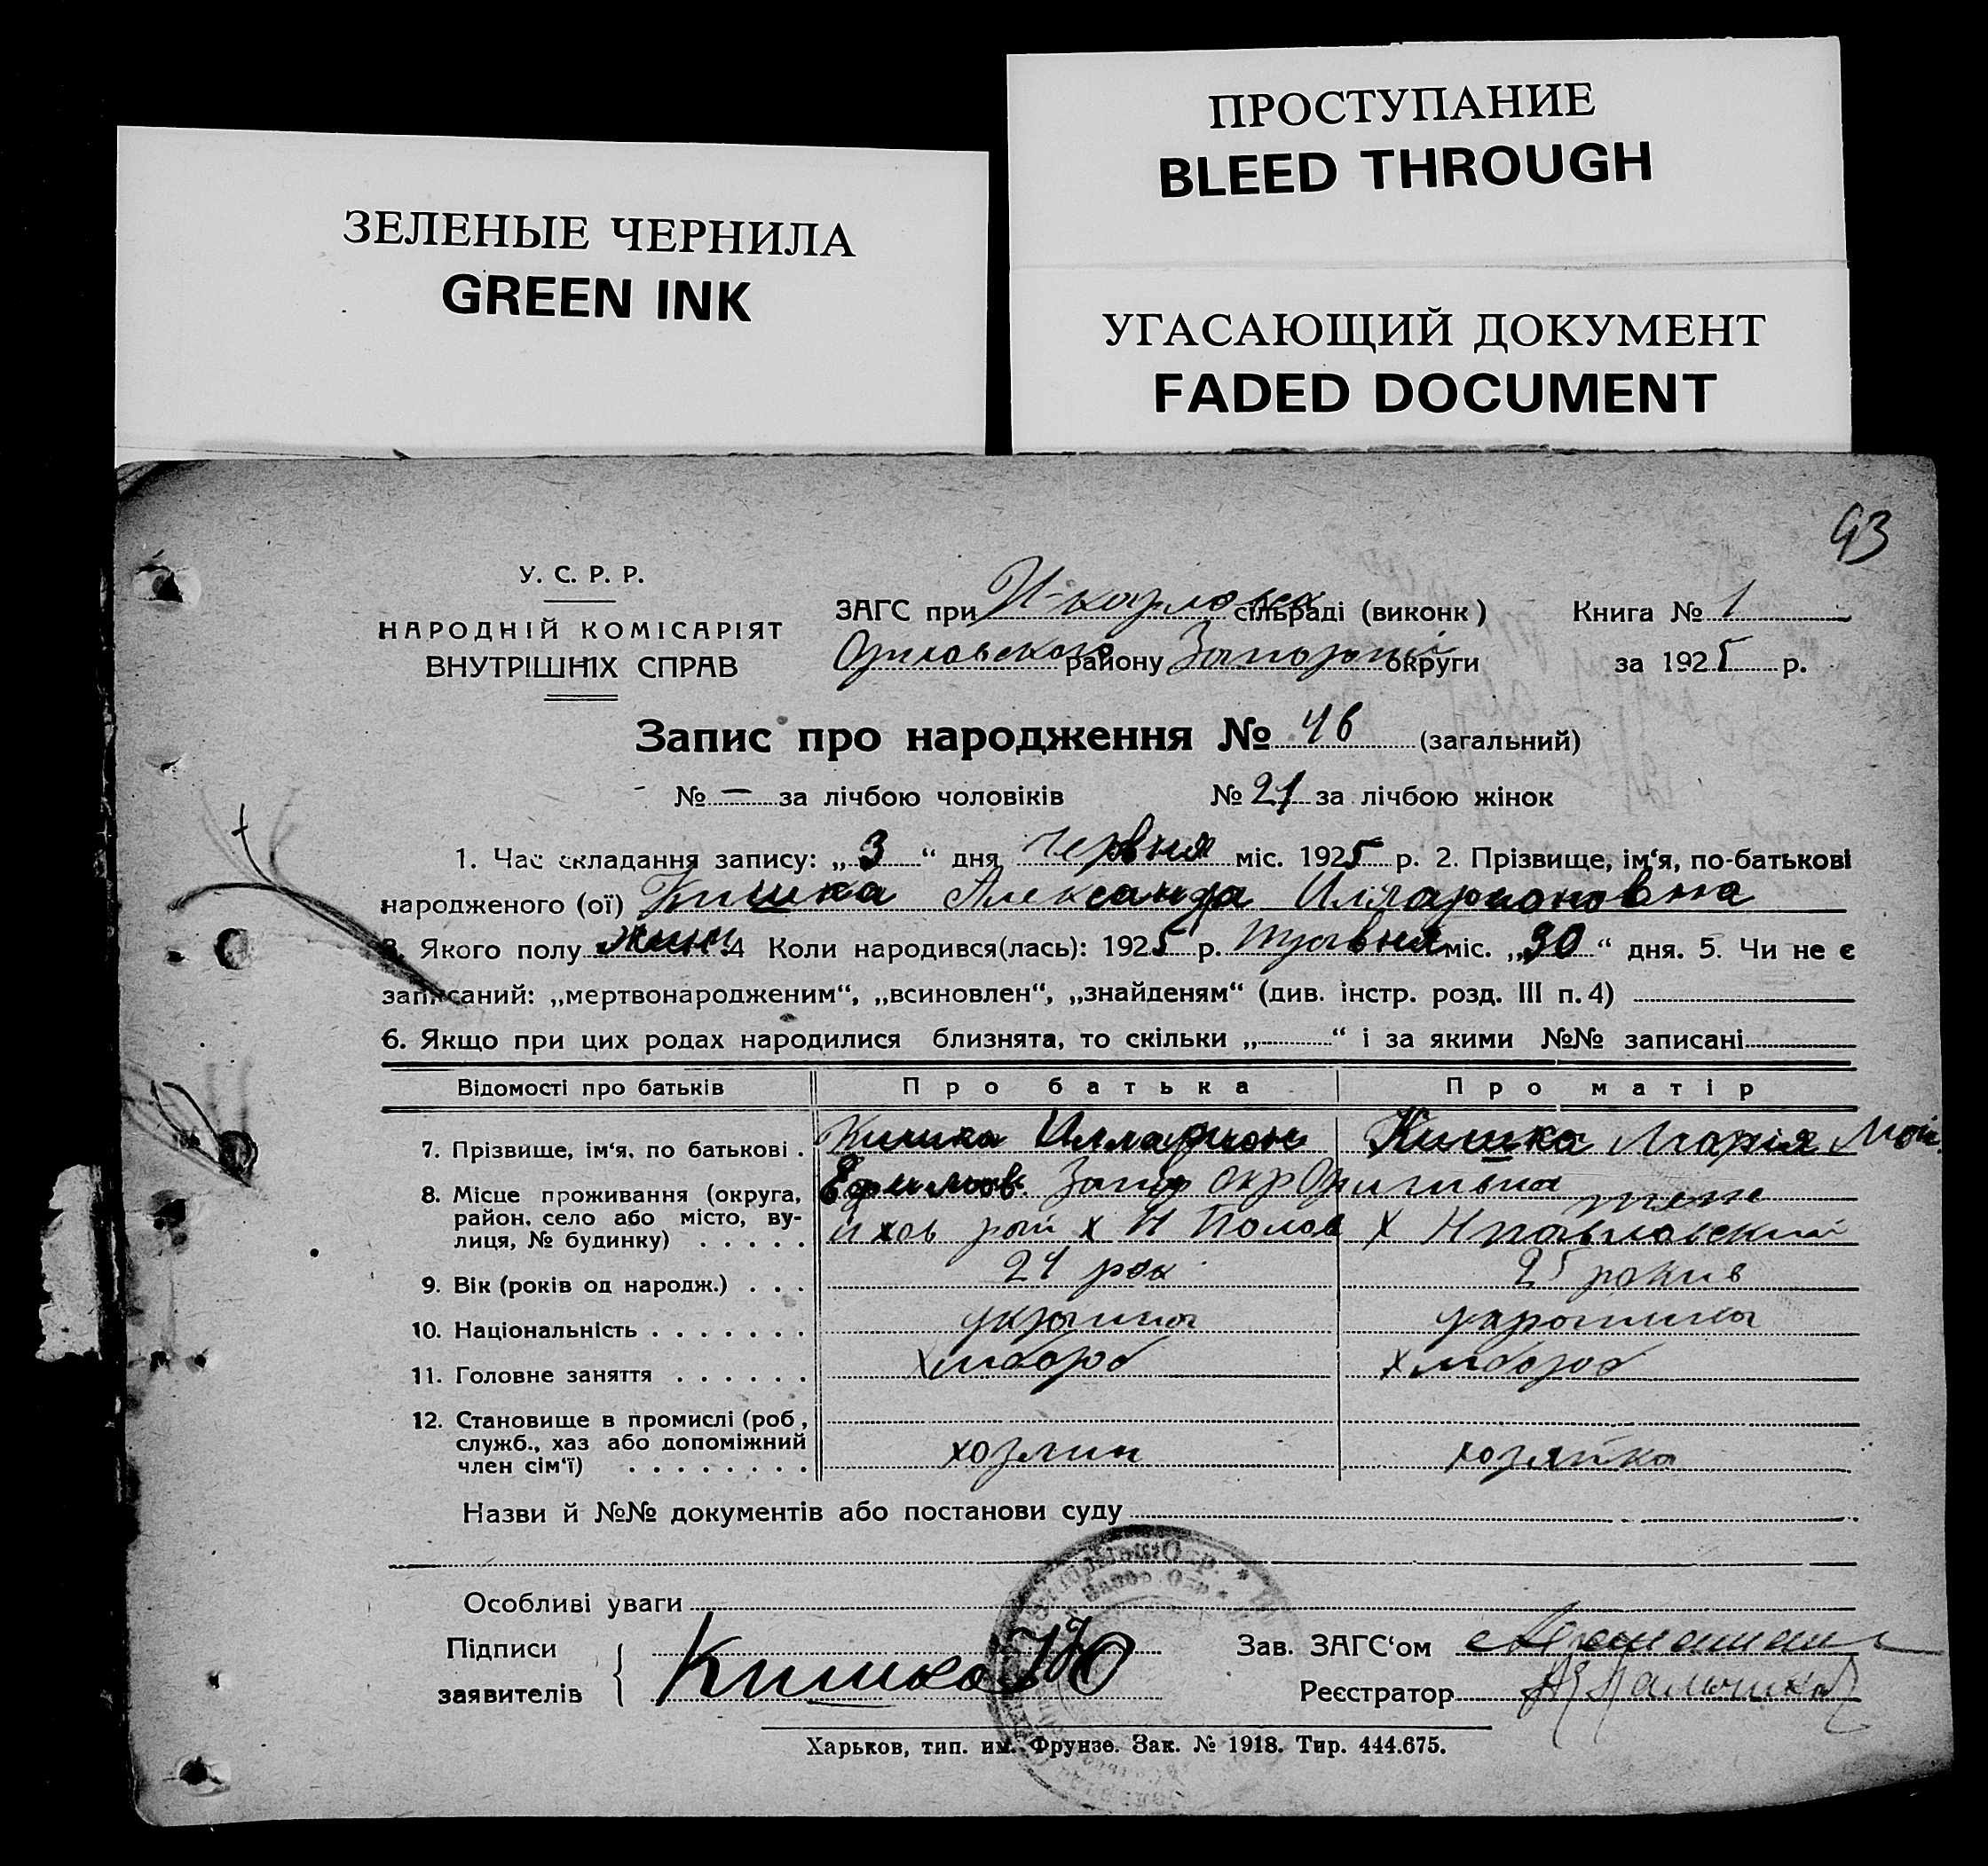 ПРОСТУПАНИЕ
BLEED THROUGH
ЗЕЛЕНЫЕ ЧЕРНИЛА
GREEN INK
УГАСАЮЩИЙ ДОКУМЕНТ
FADED DOCUMENT
93
У. С. Р. Р.
НАРОДНІЙ КОМІСАРІЯТ
ВНУТРІШНІХ СПРАВ
ЗАГС при сільраді (виконк) Книга № 1
району округи за 1925 р.
Запис про народження № 46 (загальний)
№ — за лічбою чоловіків № 21 за лічбою жінок
1. Час складання запису: „ 3 “ дня червня міс. 1925 р. 2. Прізвище, ім‘я, по-батькові
народженого (ої) Кишка Александра Илларионовна
3. Якого полу жин 4 Коли народився(лась): 1925 р. травня міс. „30“ дня. 5. Чи не є
записаний: „мертвонародженим“, „всиновлен“, „знайденям“ (див. інстр. розд. III п. 4)
6. Якщо при цих родах народилися близнята, то скільки „ “ і за якими №№ записані
Відомості про батьків Про батька Про матір
7. Прізвище, ім‘я, по батькові . Кишка Илларион Кишка Марія Мой
8. Місце проживання (округа, Ефимов. Запор окр
район, село або місто, ву- рай х Н Х Нпавловский
лиця, № будинку) . . . . .
9. Вік (років од народж.) . . . 24 рок 25 рокив
10. Національність . . . . . . .
11. Головне заняття . . . . . . хлібороб хлібороб
12. Становище в промислі (роб,
служб., хаз або допоміжний
член сім‘ї) . . . . . . . . хозяин хозяйка
Назви й №№ документів або постанови суду
Особливі уваги
Підписи
заявителів Кишка
Зав. ЗАГС‘ом
Реєстратор
Харьков, тип. им. Фрунзе. Зак. № 1918. Тир. 444.675.